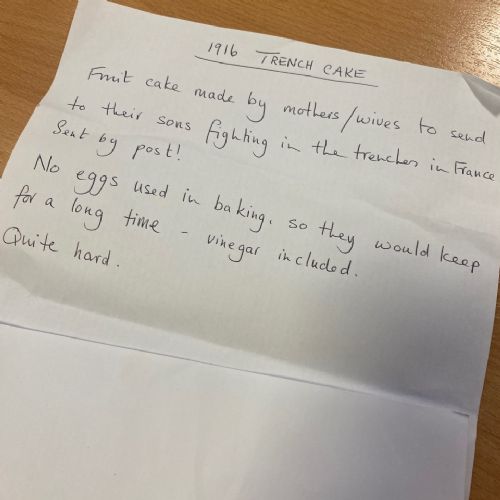 1916 TRENCH CAKE
Fruit cake made by mothers/wives to send
to their sons fighting in the trenches in France
Sent by post!
No eggs used in baking, so they would keep
for a long time - vinegar included.
Quite hard.